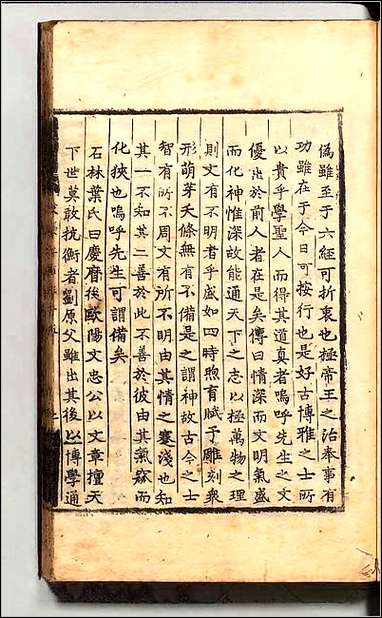 偽雖至于六經可折衷也極帝王之治奉事有
功雖在于今日可按行也是好古博雅之士所
以貴乎學聖人而得其道真者嗚呼先生之文
優出於前人者在是矣傳曰情深而文明氣盛
而化神惟深故能通天下之志以極萬物之理
則文有不明者乎盛如四時煦育賦于雕刻衆
形萌芽夭條無有不備是之謂神故古今之士
智有所不周文有所不明由其情之蹇淺也知
其一不知其二善於此不善於彼由其氣㷌而
化狹也嗚呼先生可謂備矣
石林葉氏曰慶曆後歐陽文忠公以文章擅天
下世莫敢抗衡者劉原父雖出其後以博學通